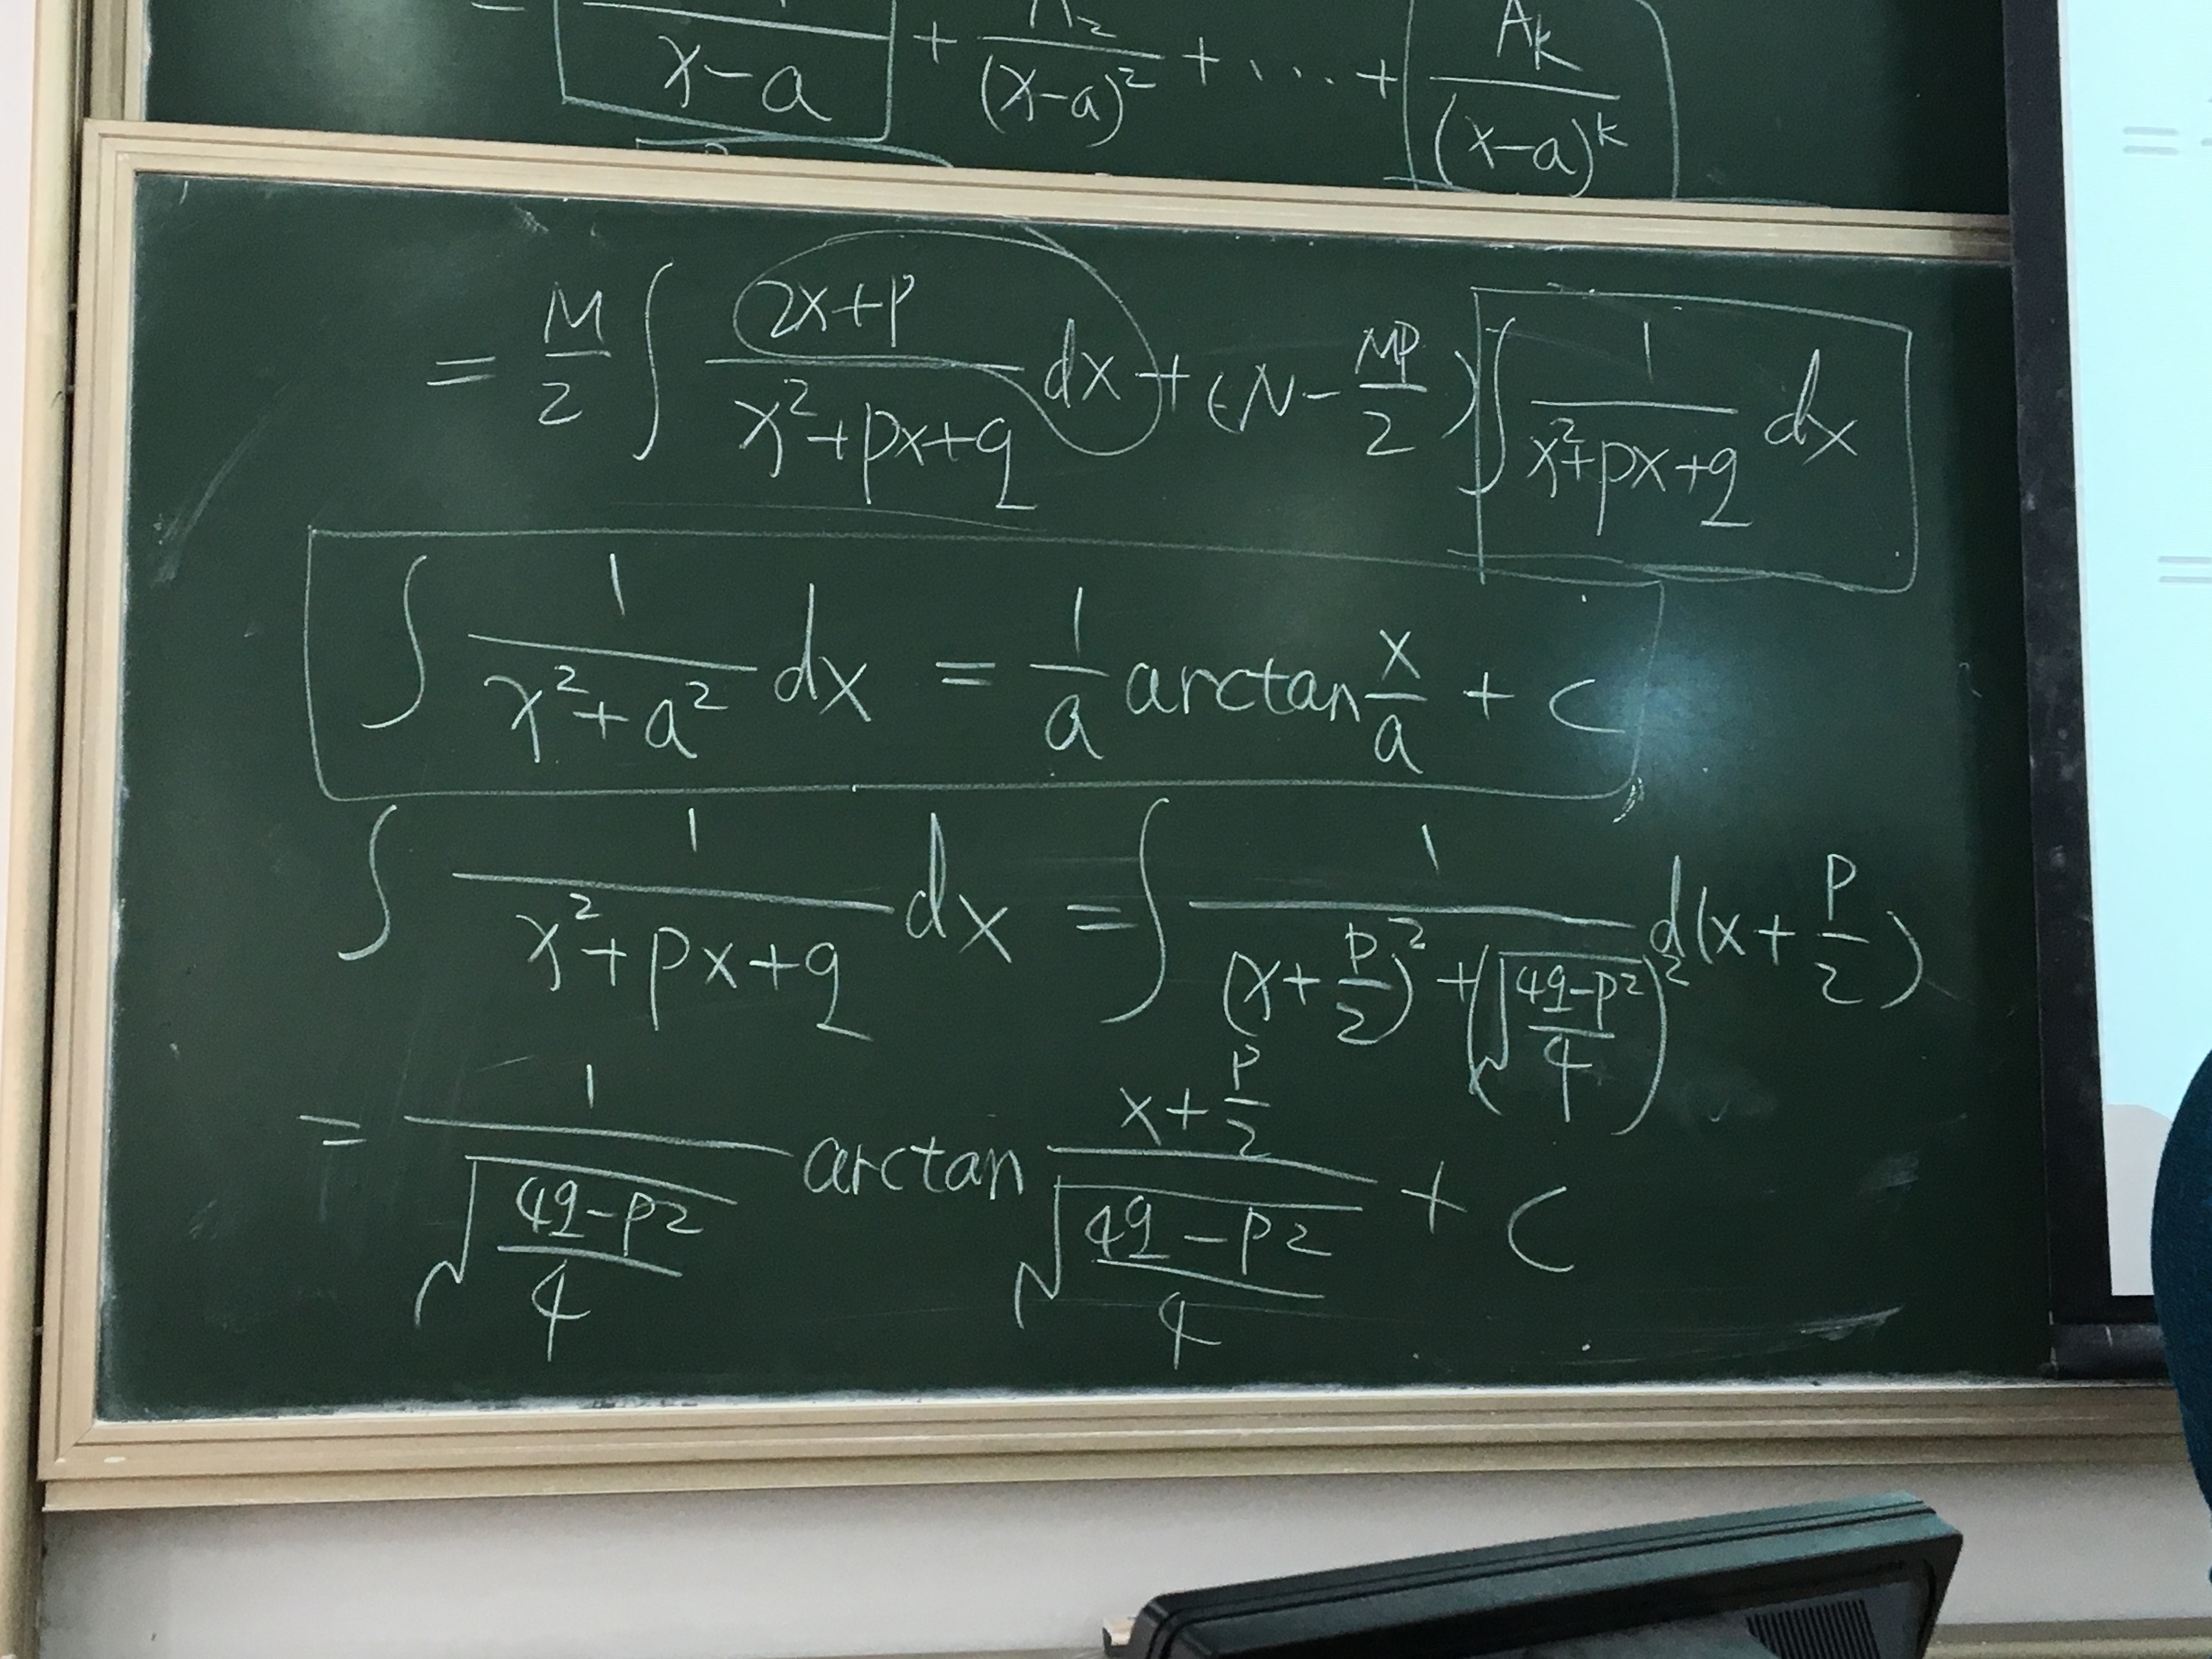 = ——/(x-a) + A₂/(x-a)² + ... + A_k/(x-a)^k
= M/2 ∫ (2x+p)/(x²+px+q) dx + (N - Mp/2) ∫ 1/(x²+px+q) dx
∫ 1/(x²+a²) dx = 1/a arctan x/a + C
∫ 1/(x²+px+q) dx = ∫ 1/((x+p/2)² + (√((4q-p²)/4))²) d(x+p/2)
= 1/√((4q-p²)/4) arctan (x+p/2)/√((4q-p²)/4) + C